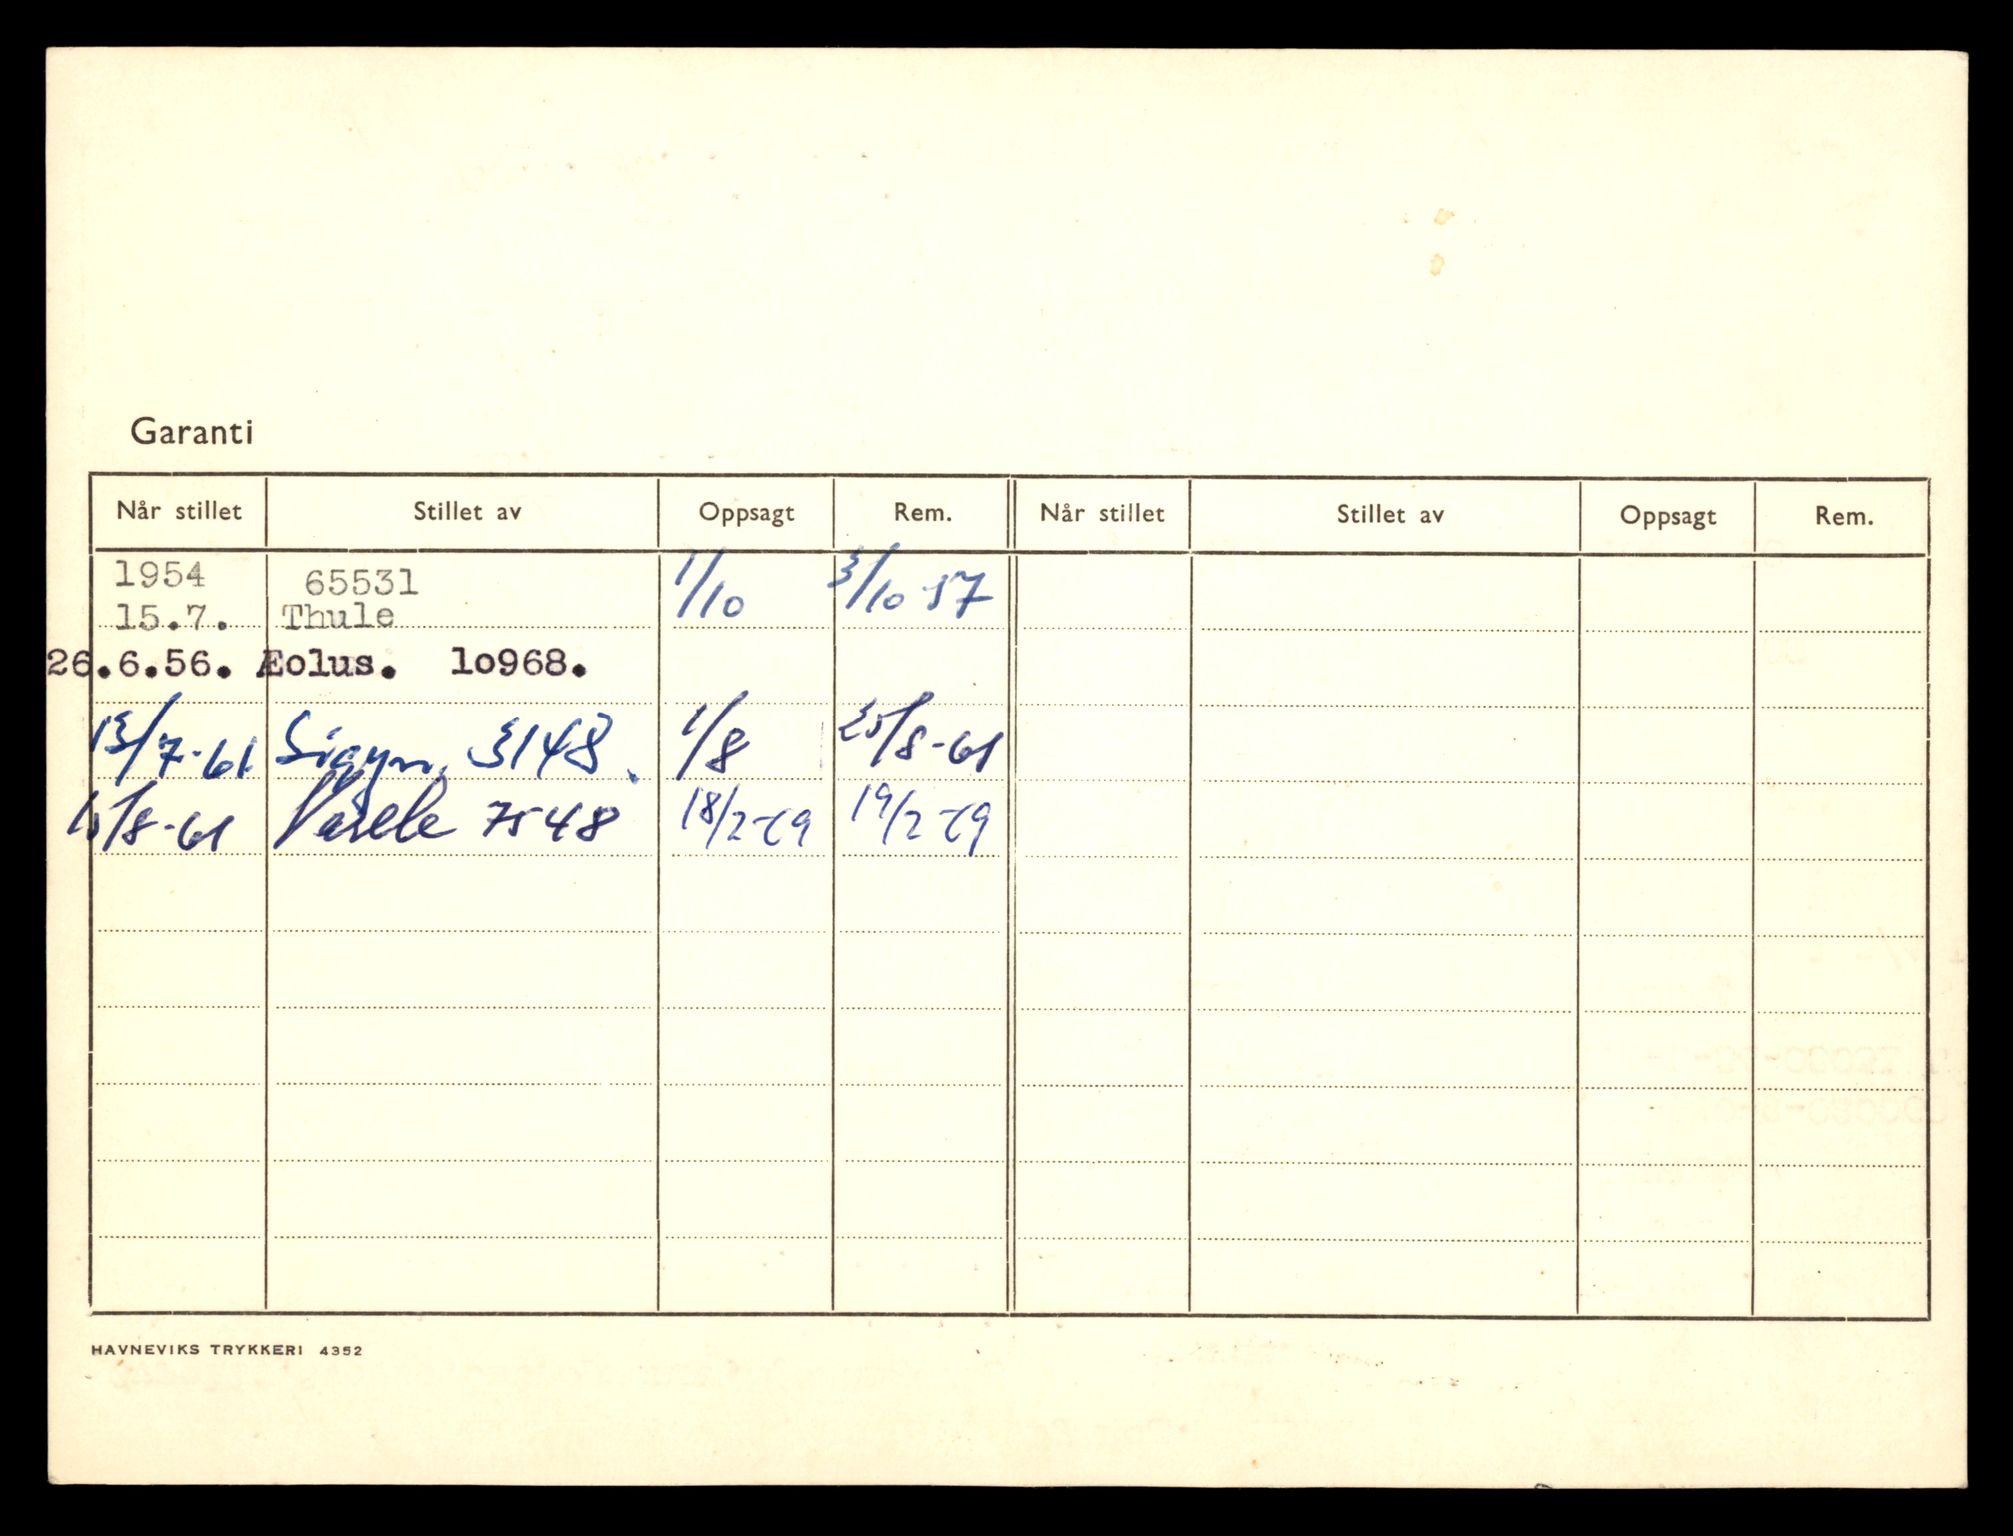 Garanti
Når stillet Stillet av Oppsagt Rem. Når stillet Stillet av Oppsagt Rem.
1954 65531 1/10 3/10-57
15.7. Thule
26.6.56. Æolus. 1o968.
13/7-61 Sigyn. 3148. 1/8 25/8-61
/8-61 7548 18/2-69 19/2-69
HAVNEVIKS TRYKKERI 4352